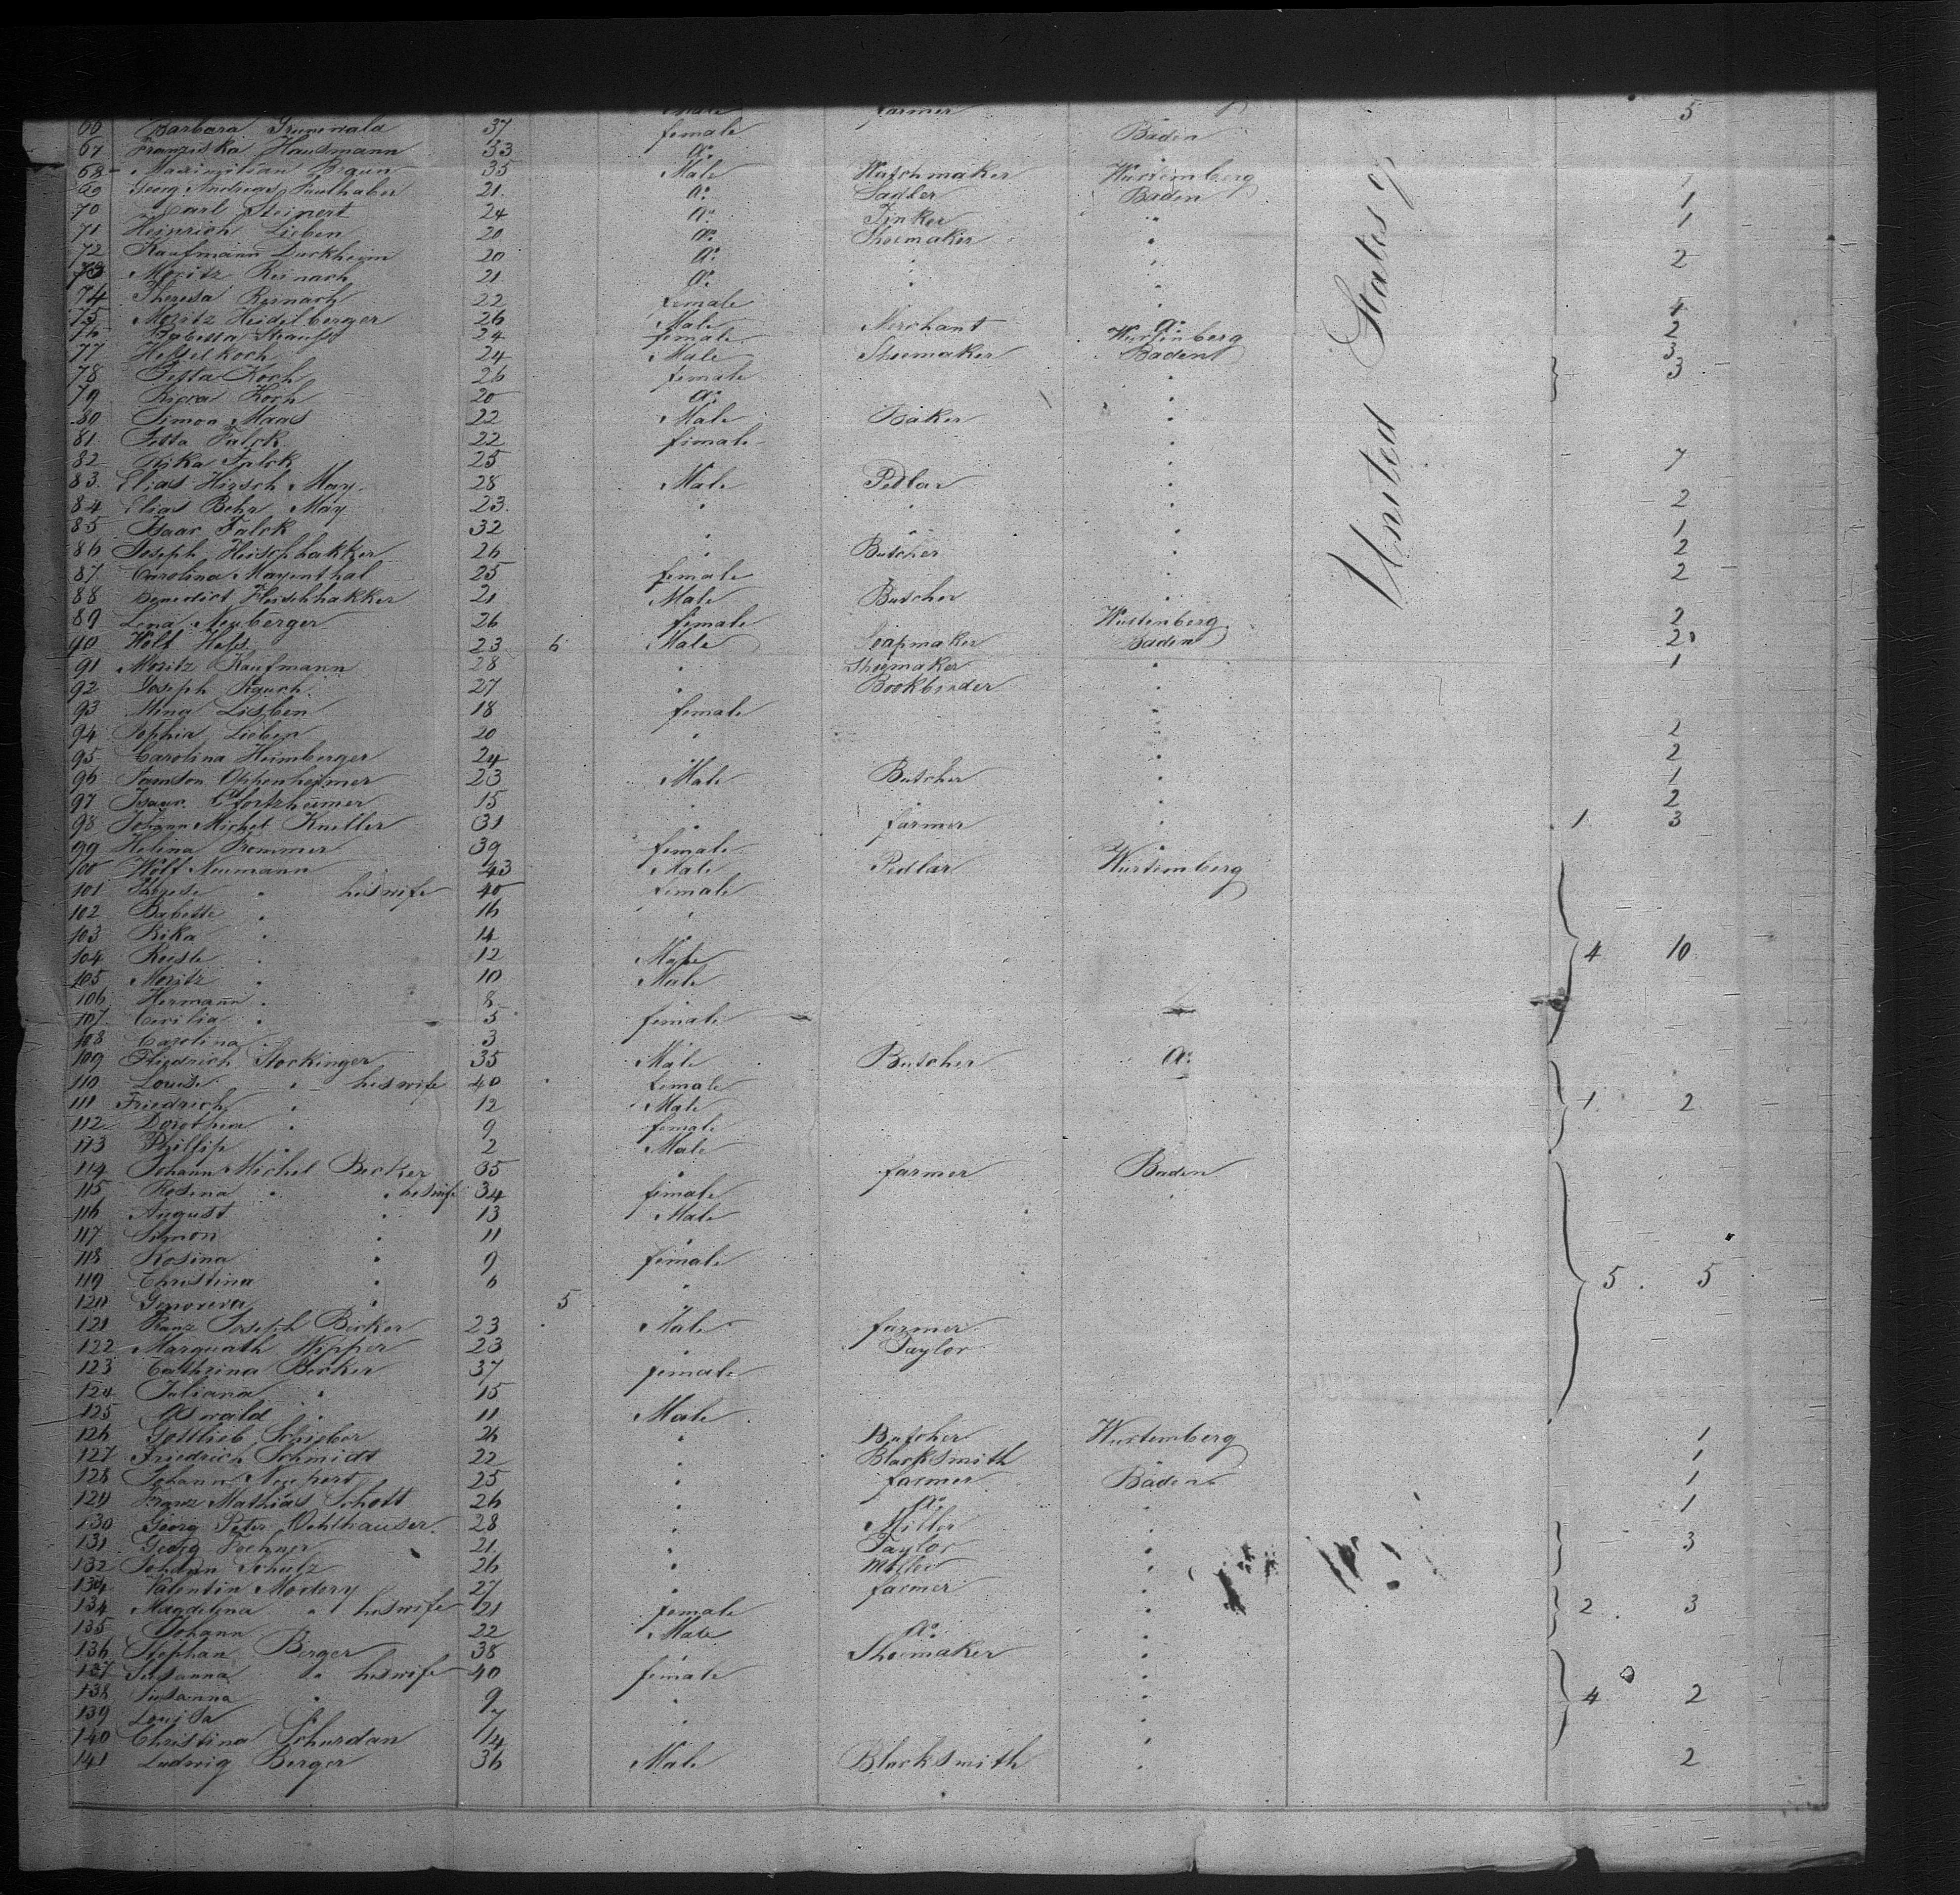 farmer 5
66 Barbara Grunewald 37 female Baden
67 Franziska Hausmann 33 do
68 Maximilian Braun 35 Male Watchmaker Wurtemberg 1
69 Georg Andreas Faulhaber 21 do Sadler Baden 1
70 Carl Steinert 24 do Tinker " 1
71 Heinrich Lieben 20 do Shoemaker "
72 Kaufmann Durkheim 20 do " " 2
73 Moritz Reinach 21 do " "
74 Theresa Reinach 22 female "
75 Moritz Heidelberger 26 Male Merchant do
76 Babetta Strauss 24 female Wurtenberg 2
77 Koch 24 Male Shoemaker Baden 3
78 Koch 26 female " 3
79 Koch 20 do "
80 Simon Maas 22 Male Baker "
81 Falck 22 female "
82 Rika Falck 25 " 7
83 Elias Hirsch May 28 Male Pedlar "
84 Elias Behr May 23 " " 2
85 Isaac Falck 32 " " 1
86 Joseph Fleischhakker 26 " Butcher " 2
87 Carolina Mayenthal 25 female " 2
88 Benedict Fleischhakker 21 Male Butcher "
89 Lena Neuberger 26 female Wurtenberg 2
90 Wolf Hess 23 6 Male Soapmaker Baden 2
91 Moritz Kaufmann 28 " Shoemaker " 1
92 Joseph Rauch 27 " Bookbinder "
93 Mina Lieben 18 female "
94 Sophia Lieben 20 " " 2
95 Carolina Heimberger 24 " " 2
96 Samson Oppenheimer 23 Male Butcher " 1
97 Isaac Pfortzheimer 15 " " " 2
98 Johann Michel Kneller 31 " farmer " 1 3
99 Helena Frommer 39 female "
100 Wolf Neumann 43 Male Pedlar Wurtemberg
101 Therese " his wife 40 female
102 Babette " 16 "
103 Rika " 14
104 " 12 Male 4 10
105 Moritz " 10 Male
106 Hermann " 8 "
107 Cecilia " 5 female
108 Carolina " 3 "
109 Friedrich Stockinger 35 Male Butcher do
110 Louise " his wife 40 female
111 Friedrich " 12 Male 1 2
112 Dorothea " 9 female
113 Phillip " 2 Male
114 Johann Michel Becker 35 " farmer Baden
115 Rosina " " his wife 34 female
116 August " 13 Male
117 Simon " 11 "
118 Rosina " 9 female
119 Christina " 6 " 5 5
120 Genoveva " 5 "
121 Franz Joseph Becker 23 Male farmer
122 Marquath Wipper 23 " Taylor
123 Cathrina Becker 37 female
124 Juliana " 15 "
125 Oswald " 11 Male
126 Gottlieb Schieber 26 " Butcher Wurtemberg 1
127 Friedrich Schmidt 22 " Blacksmith 1
128 Johann Neupert 25 " farmer Baden 1
129 Franz Mathias Schott 26 " do " 1
130 Georg Peter Oehlhauser 28 " Miller "
131 Georg 21 " Taylor " 3
132 Johann Schulz 26 " Miller "
134 Valentin Modery 27 " farmer "
134 Magdelena " his wife 21 female " 2 3
135 Johann 22 Male do "
136 Stephan Berger 38 " Shoemaker "
137 Susanna " his wife 40 female "
138 Susanna " 9 " " 4 2
139 Louisa " 7 " "
140 Christina Schurdan 14 "
141 Ludwig Berger 36 Male Blacksmith " 2
United States of